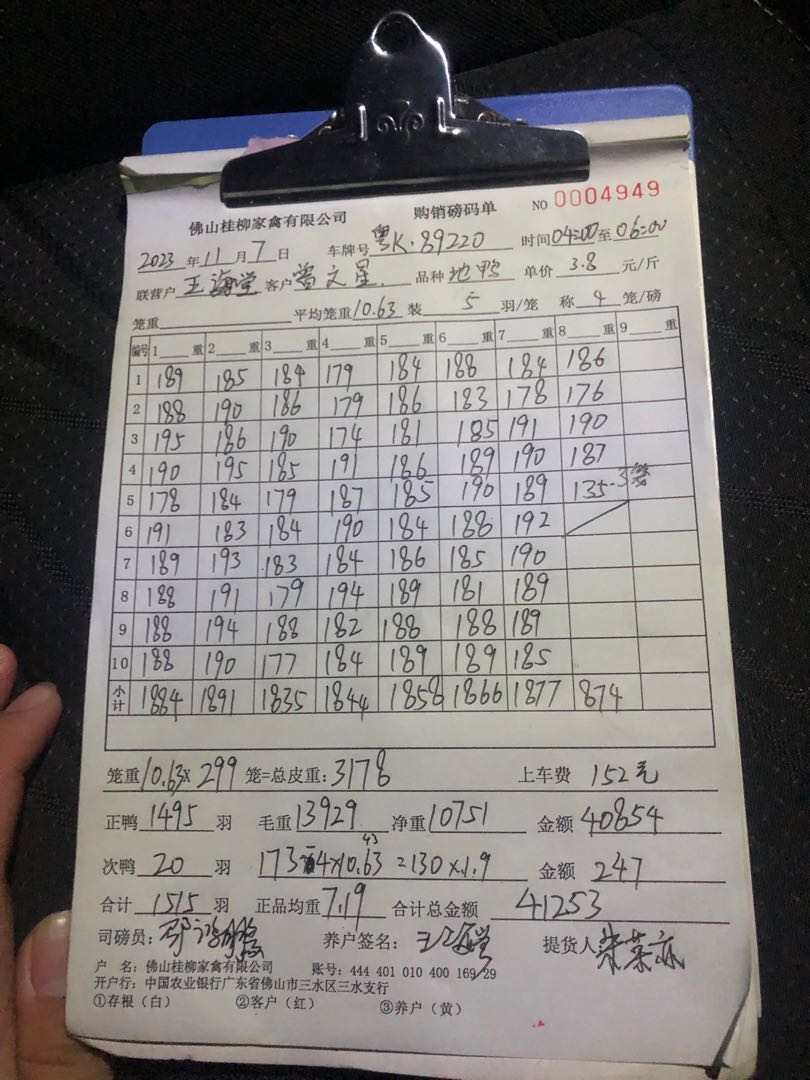 佛山桂柳家禽有限公司 购销磅码单 NO 0004949
2023 年 11 月 7 日 车牌号 粤K·89220 时间 04:00 至 06:00
联营户 王海堂 客户 曾文星 品种 地鸭 单价 3.8 元/斤
笼重 平均笼重 10.63 装 5 羽/笼 称 4 笼/磅
编号 1 重 2 重 3 重 4 重 5 重 6 重 7 重 8 重 9 重
1 189 185 184 179 184 188 184 186
2 188 190 186 179 186 183 178 176
3 195 186 190 174 181 185 191 190
4 190 195 185 191 186 189 190 187
5 178 184 179 187 185 190 189 135-3笼
6 191 183 184 190 184 188 192
7 189 193 183 184 186 185 190
8 188 191 179 194 189 181 189
9 188 194 188 182 188 188 189
10 188 190 177 184 189 189 185
小计 1884 1891 1835 1844 1858 1866 1877 874
笼重 10.63× 299 笼=总皮重: 3178 上车费 152元
正鸭 1495 羽 毛重 13929 净重 10751 金额 40854
43
次鸭 20 羽 173-4×10.63=130×1.9 金额 247
合计 1515 羽 正品均重 7.19 合计总金额 41253
司磅员: 养户签名: 提货人
户 名: 佛山桂柳家禽有限公司 账号: 444 401 010 400 169 29
开户行: 中国农业银行广东省佛山市三水区三水支行
①存根（白） ②客户（红） ③养户（黄）